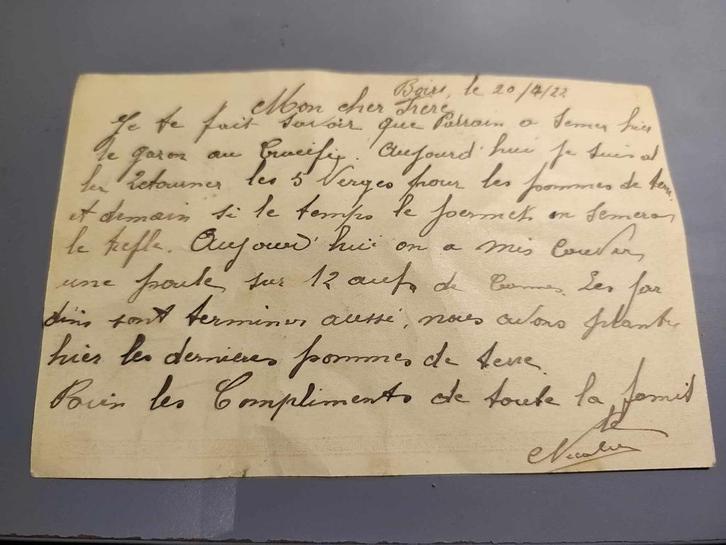 le 20/4/22
Mon cher Frère
Je te fait savoir que Parrain a semer hier
le gazon au Crucifix. Aujourd'hui je suis al
ler retourner les 5 Verges pour les pommes de terre
et demain si le temps le permet, on semera
le trefle. Aujourd'hui on a mis couver
une poule sur 12 œufs de Cannes. Les jar
dins sont terminer aussi, nous avons planter
hier les dernières pommes de terre.
les Compliments de toute la famil
le
Nicolas